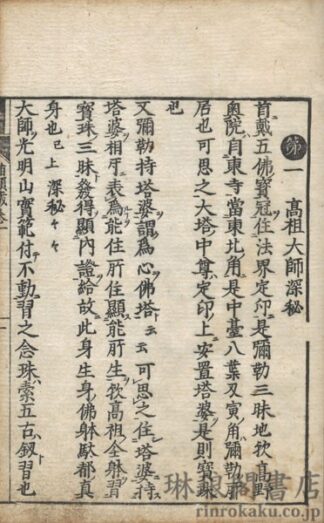 第一　高祖大師深秘
首戴五佛寶冠住法界定印是彌勒三昧地歟高野
奥院自東寺當東北角是中臺八葉又寅角彌勒
居也可思之大塔中尊定印上安置塔婆是則寶珠
也
又彌勒持塔婆謂為心佛塔云云可思之住塔婆持
塔婆相牙表為能住所住顯能所生歟高祖全躰習
寶珠三昧發得顯内證給故此身生身佛躰歟都真
身也已上 深秘々々
大師光明山實範付不動習之念珠索五古釼習也
琳琅閣書店
rinrokaku.co.jp